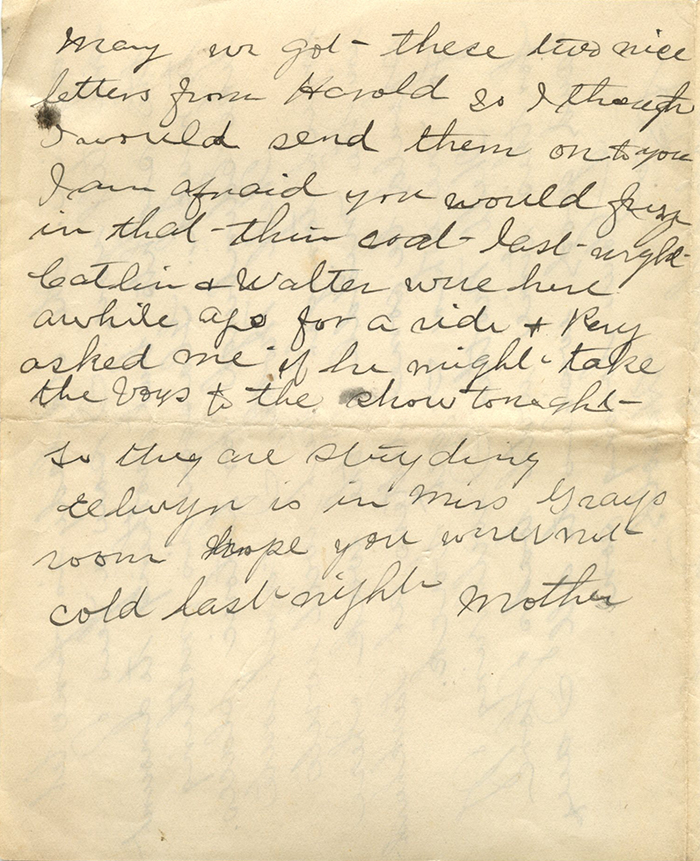 May we got these two nice
letters from Harold so I though
I would send them on to you
I am afraid you would
in that thin coat last night
Catlin & Walter were here
awhile ago for a ride &
asked me if he might take
the boys to the show tonight
So they are studying
Elwyn is in Miss Grays
room hope you were not
cold last night Mother